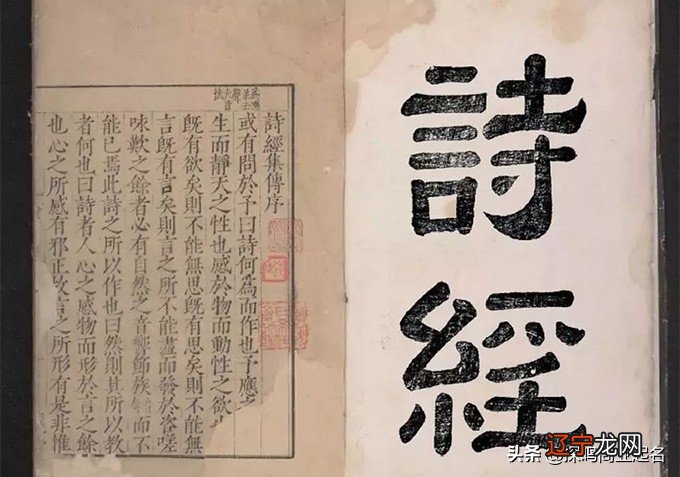 詩
經
並去
聲
夫音
扶
詩經集傳序
或有問於予曰詩何為而作也予應
生而靜天之性也感於物而動性之欲也
既有欲矣則不能無思既有思矣則不能無
言既有言矣則言之所不能盡而發於咨嗟
味歎之餘者必有自然之音響節族而不
能已焉此詩之所以作也曰然則其所以教
者何也曰詩者人心之感物而形於言之餘
也心之所感有邪正故言之所形有是非惟
辽宁龙网
头条 起名